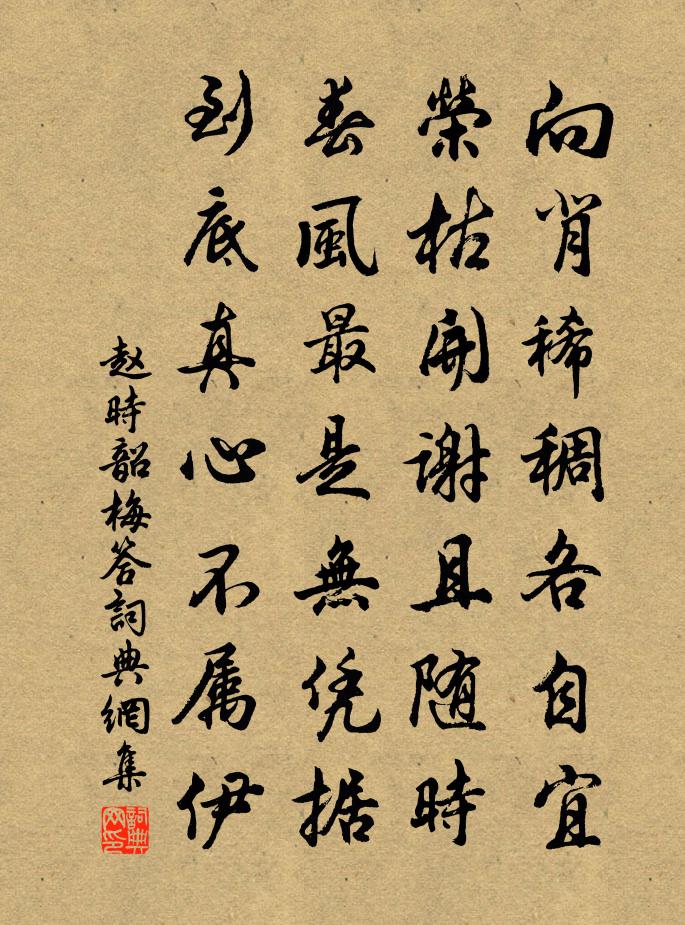 向背稀稠各自宜
榮枯開谢且随時
春風最是無凭据
到底真心不属伊
赵時韶梅答詞典網集
詞典網印